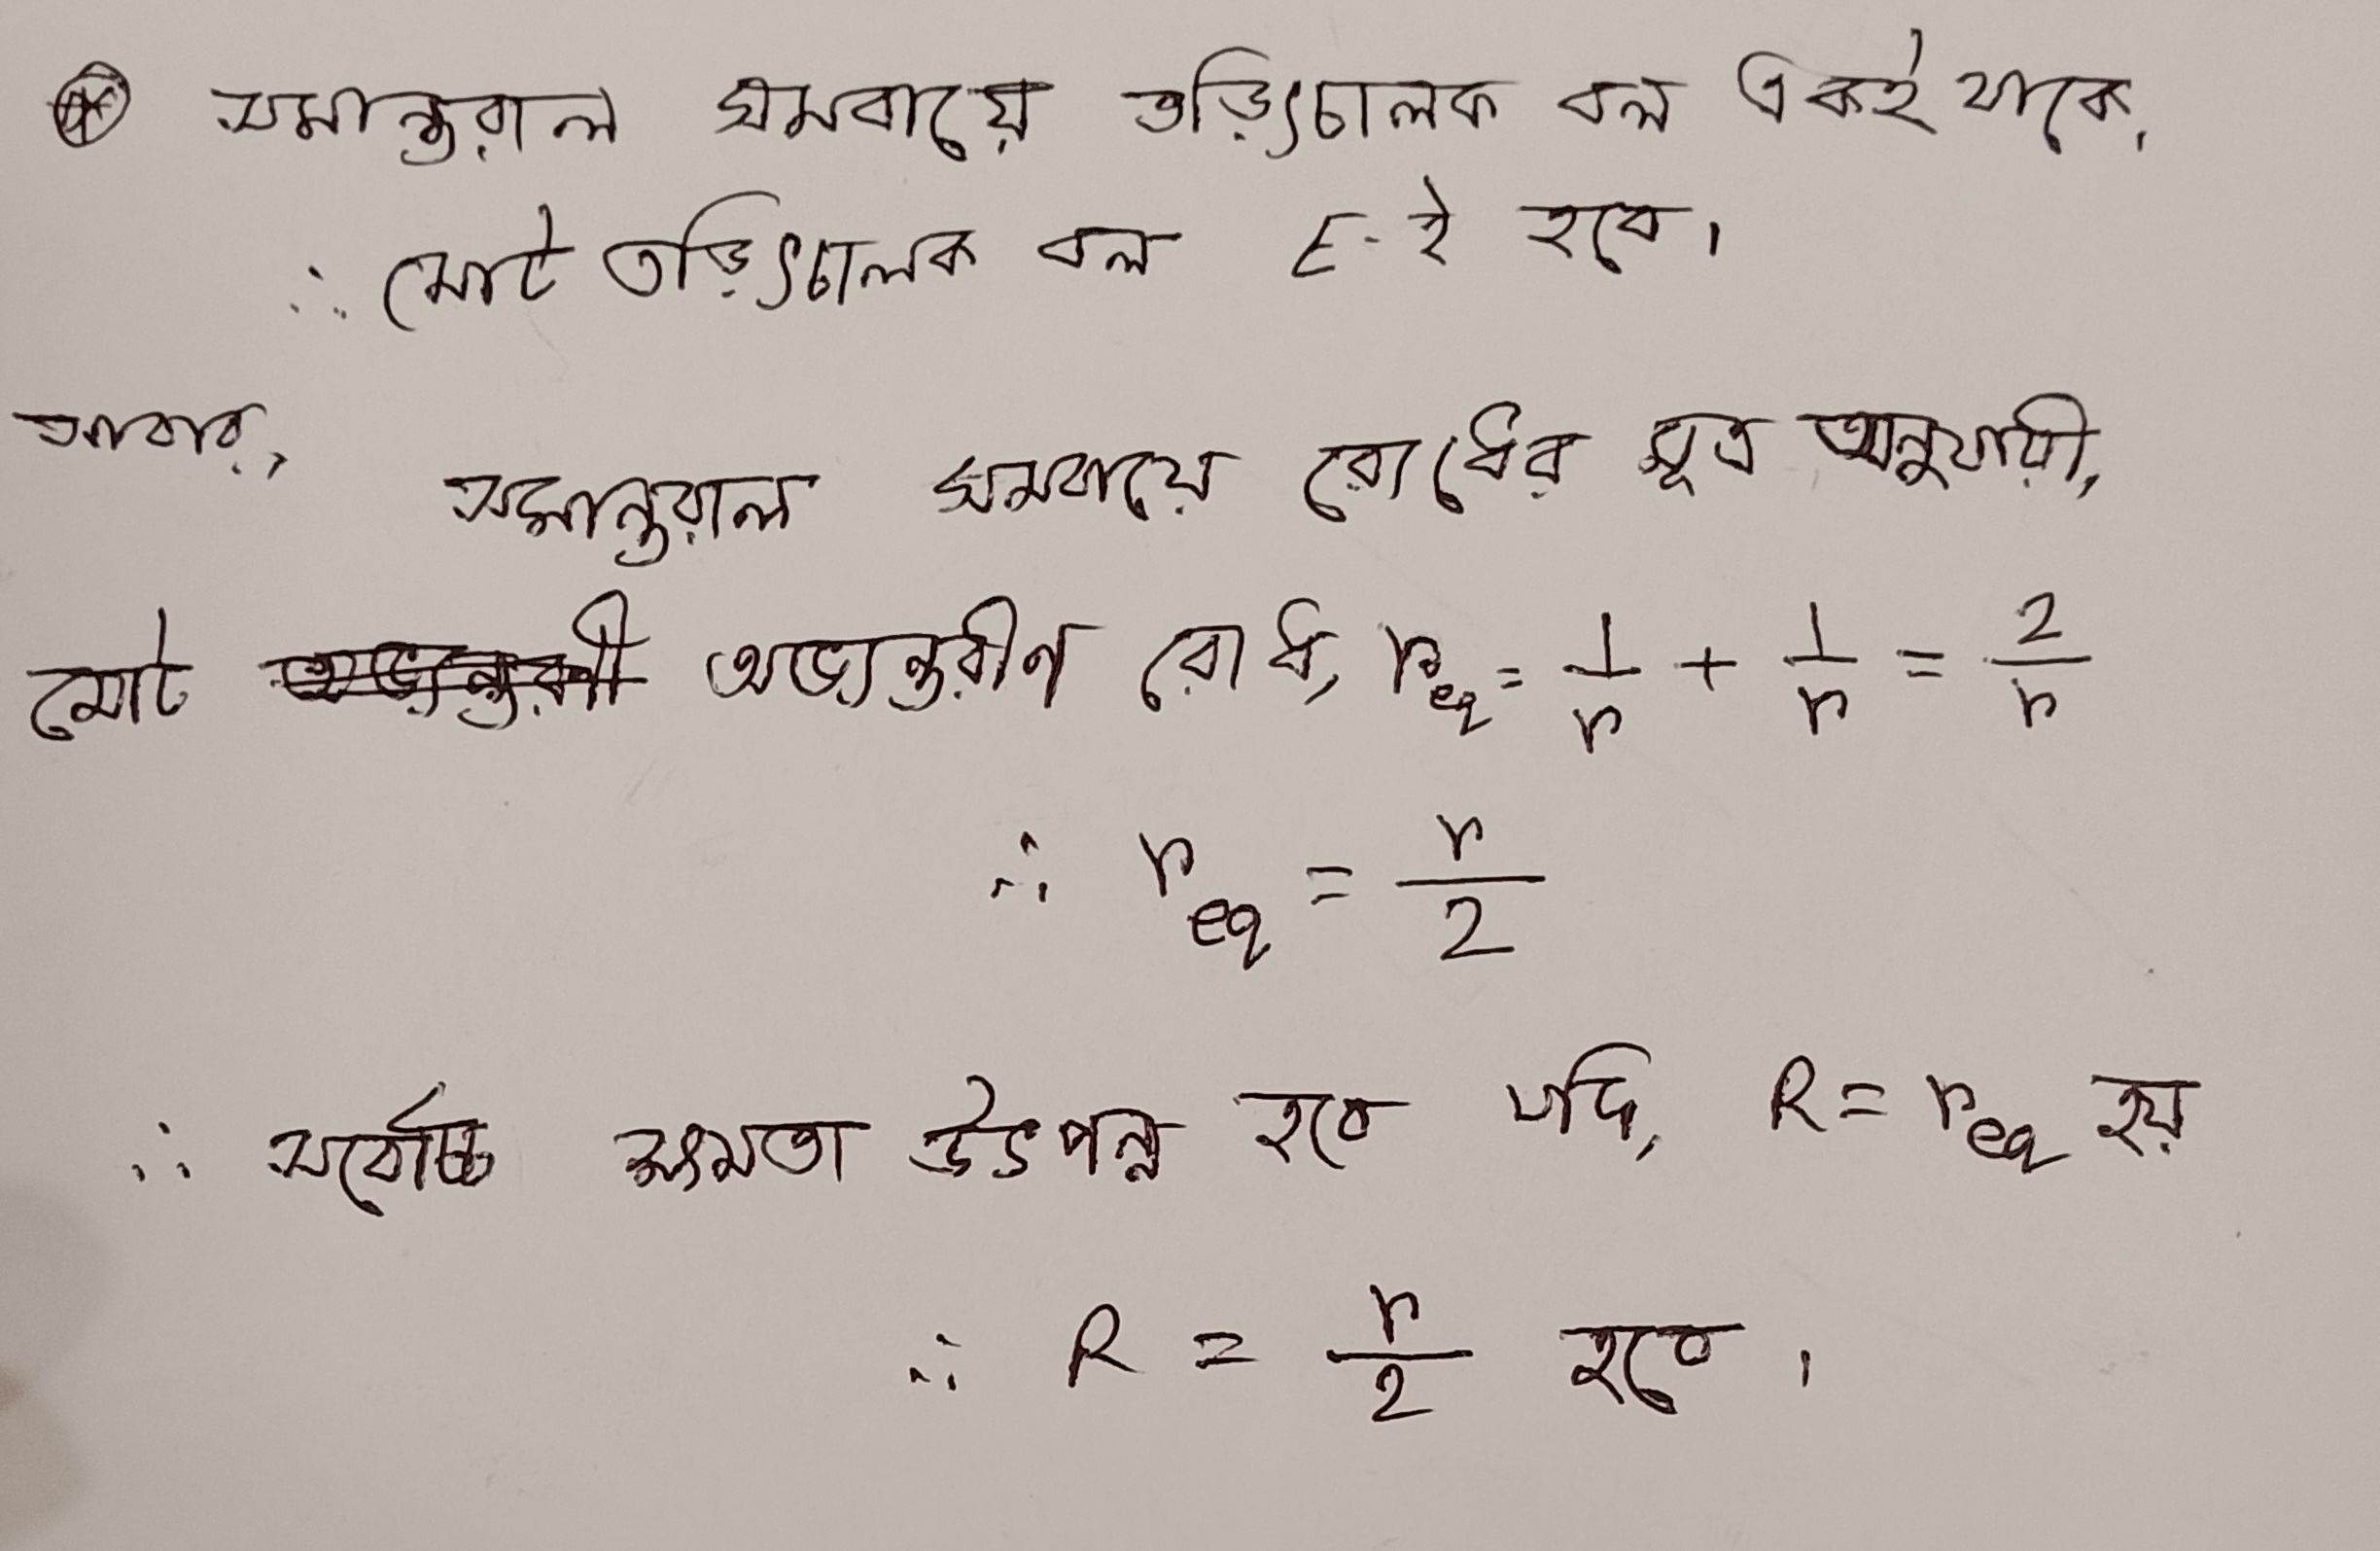 ⊛ সমান্তরাল সমবায়ে তড়িৎচালক বল একই থাকে,
∴ মোট তড়িৎচালক বল E-ই হবে।
আবার,
সমান্তরাল সমবায়ে রোধের সূত্র অনুযায়ী,
মোট অভ্যন্তরীন রোধ, r_eq = 1/r + 1/r = 2/r
∴ r_eq = r/2
∴ সর্বোচ্চ ক্ষমতা উৎপন্ন হবে যদি, R = r_eq হয়
∴ R = r/2 হবে।